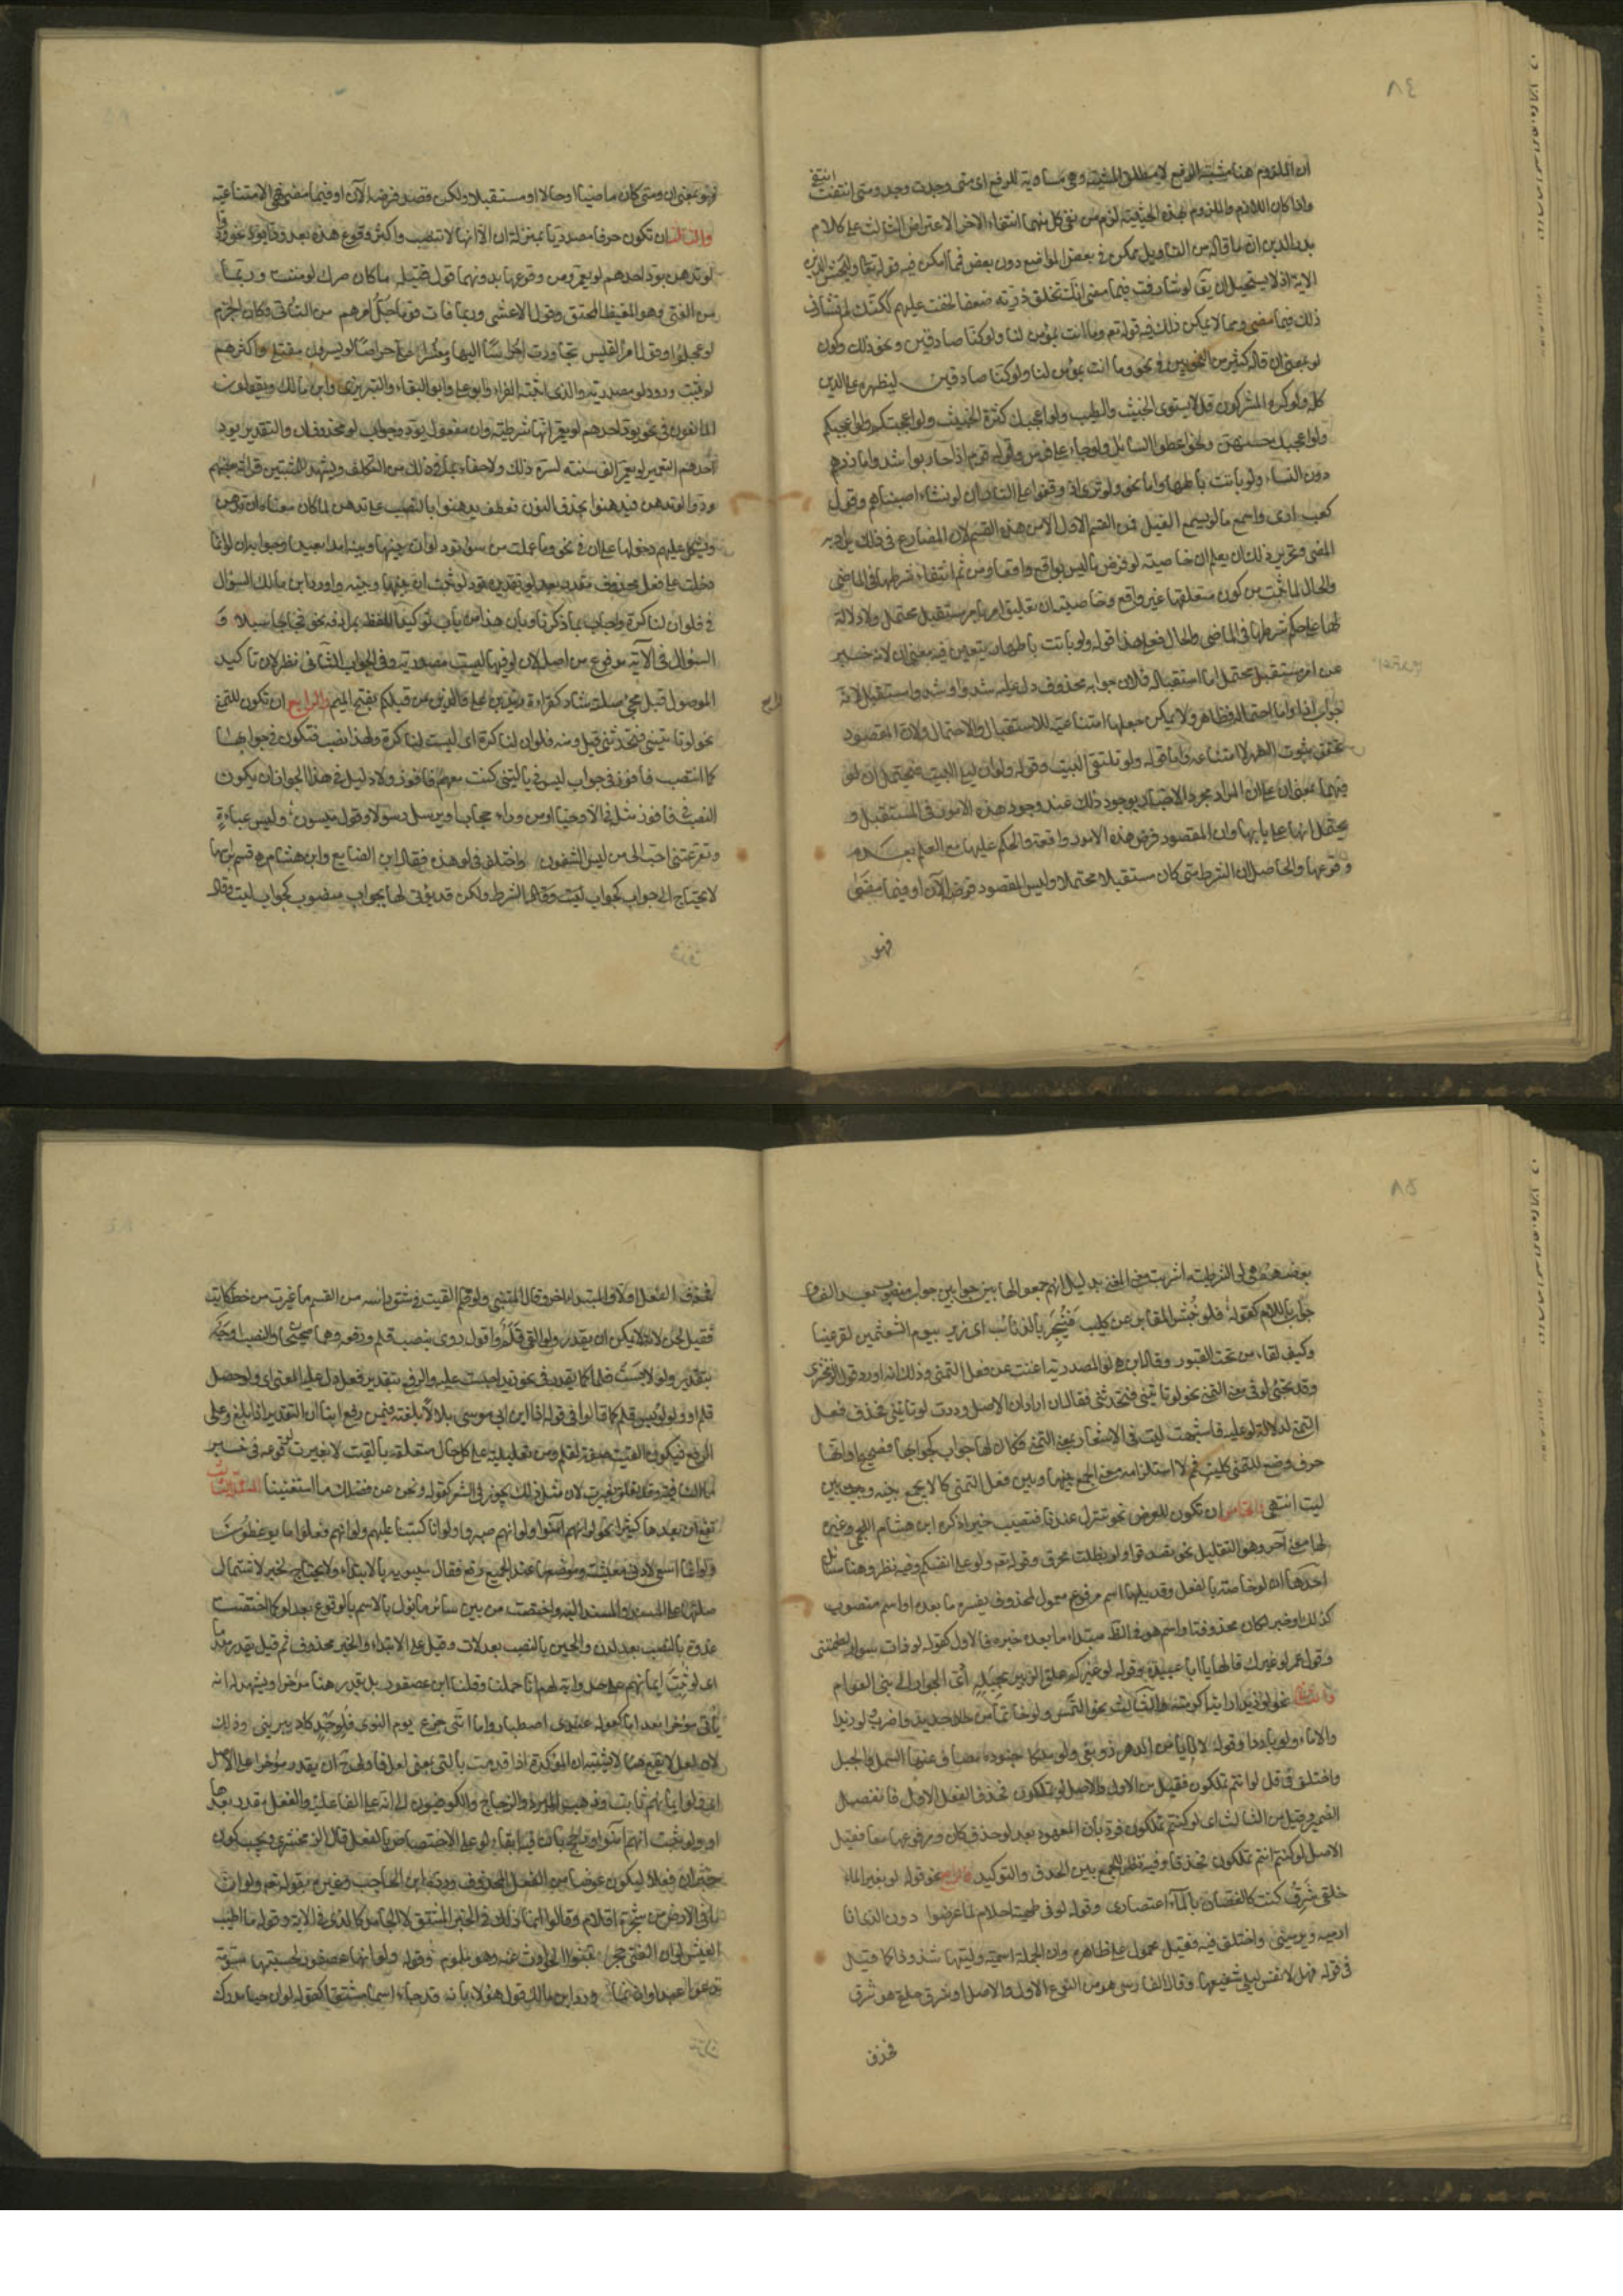 ٨٤
ان الملزوم هنا مشيته الرفع لا مطلق المشية وهي مساوية للرفع اى متى وجدت وجد ومتى انتفت انتفى
واذا كان اللازم والملزوم بهذه الحيثية لزم من نفى كل منهما انتفاء الاخر الاعتراض الثالث على كلام
بدر الدين ان ما قاله من التاويل ممكن فى بعض المواضع دون بعض فمما امكن فيه قوله تعا وليخش الذين
الاية اذ لا يستحيل ان يق لو شارفت فيما مضى انك تخلف ذرّية ضعفا لخفت عليهم لكنك لم تشارف
ذلك فيما مضى ومما لا يمكن ذلك فيه قوله تعم وما انت بمؤمن لنا ولو كنا صادقين ونحو ذلك وكون
لو بمعنى ان قاله كثير من النحويين فى نحو وما انت بمؤمن لنا ولو كنا صادقين ليظهره على الدين
كله ولو كره المشركون قل لا يستوى الخبيث والطيب ولو اعجبك كثرة الخبيث ولو اعجبتكم ولو اعجبكم
ولو اعجبك حسنهن ونحو اعطوا السايل ولو جاء على فرس وقوله قوم اذا حاربوا شدوا مازرهم
دون النساء ولو باتت باطهار واما نحو ولو ترى اذ وقفوا على النار ان لو نشاء اصبناهم وقول
كعب ارى واسمع ما لو يسمع الفيل فمن القسم الاول لا من هذه القسم لان المضارع فى ذلك مراد به
المضى وتحرير ذلك ان يعلم ان خاصية لو فرض ما ليس بواقع واقعا ومن ثم انتفاء شرطها فى الماضى
والحال لما ثبت من كون متعلقها غير واقع وخاصية ان تعليق امر بامر مستقبل محتمل ولا دلالة
لها على حكم شرطها فى الماضى والحال فعلى هذا قوله ولو باتت باطهار يتعين فيه معنى ان لانه خبر
عن امر مستقبل محتمل اما استقباله فلان جوابه محذوف دل عليه شدوا وشدوا مستقبل لانه
جواب اذا واما احتماله فظاهر ولا يمكن جعلها امتناعية للاستقبال والاحتمال ولان المقصود
تحقق ثبوت الطهر لا امتناعه واما قوله ولو تلتقى البيت وقوله ولو ان ليلى البيت فيحتمل ان لو
فيهما بمعنى ان على ان المراد مجرد الاخبار بوجود ذلك عند وجود هذه الامور فى المستقبل و
يحتمل انها على بابها وان المقصود فرض هذه الامور واقعة والحكم عليها مع العلم بعدم
وقوعها والحاصل ان الشرط متى كان مستقبلا محتملا وليس المقصود فرضه الآن او فيما مضى
فهو
فهو بمعنى ان ومتى كان ماضيا او حالا او مستقبلا ولكن قصد فرضه الآن او فيما مضى فهى الامتناعية
والثالث ان تكون حرفا مصدريا بمنزلة ان الا انها لا تنصب واكثر وقوع هذه بعد ودّ او يودّ نحو ودوا
لو تدهن يود احدهم لو يعمر ومن وقوعها بدونهما قول قتيله ما كان ضرك لو مننت وربما
من الفتى وهو المغيظ المحنق وقول الاعشى وربما فات قوما جلّ امرهم من التأنى وكان الحزم
لو عجلوا وقول امرء القيس تجاوزت احراسا اليها ومعشرا علىّ حراصا لو يسرون مقتلى واكثرهم
لم يثبت ورود لو مصدرية والذى اثبته الفراء وابو على وابو البقاء والتبريزى وابن مالك ويقولون
المانعون فى نحو يود احدهم لو يعمر انها شرطية وان مفعول يود وجواب لو محذوفان والتقدير يود
احدهم التعمير لو يعمر الف سنة لسره ذلك ولا خفاء بما فى ذلك من التكلف ويشهد للمثبتين قراءة بعضهم
ودوا لو تدهن فيدهنوا بحذف النون فعطف يدهنوا بالنصب على تدهن لما كان معناه ان تدهن
ويشكل عليهم دخولها على ان فى نحو وما عملت من سوء تود لو ان بينها وبينه امدا بعيدا وجوابه ان لو انما
دخلت على فعل محذوف مقدر بعد لو تقديره تود لو ثبت ان بينها وبينه واورد ابن مالك السؤال
فى فلو ان لنا كرة واجاب بما ذكرنا وبان هذا من باب توكيد اللفظ بمرادفه نحو فجاجا سبلا و
السؤال فى الآية مدفوع من اصله لان لو فيها ليست مصدرية وفى الجواب الثانى نظر لان تاكيد
الموصول قبل مجئ صلته شاذ كقراءة زيد بن على والذين من قبلكم بفتح الميم والرابع ان تكون للتمنى
نحو لو تأتينى فتحدثنى قيل ومنه فلو ان لنا كرة اى ليت لنا كرة ولهذا نصب فتكون فى جوابها
كما انتصب فافوز فى جواب ليت فى يا ليتنى كنت معهم فافوز ولا دليل فى هذا الجواز ان يكون
النصب فى فافوز مثله فى الا وحيا او من وراء حجاب او يرسل رسولا وقول ميسون ولبس عباءة
وتقر عينى احب الى من لبس الشفوف واختلف فى لو هذه فقال ابن الضايع وابن هشام هى قسم برأسها
لا تحتاج الى جواب كجواب الشرط ولكن قد يؤتى لها بجواب منصوب كجواب ليت وقال
٨٥
بعضهم هى لو الشرطية اشربت معنى التمنى بدليل انهم جمعوا لها بين جوابين جواب منصوب بعد الفاء و
جواب باللام كقوله فلو نبش المقابر عن كليب فيخبر بالذنائب اى زير بيوم الشعثمين لقر عينا
وكيف لقاء من تحت القبور وقال ابن مالك هى لو المصدرية اغنت عن فعل التمنى وذلك انه اورد قول الزمخشرى
وقد تجئ لو فى معنى التمنى نحو لو تأتينى فتحدثنى فقال ان اراد ان الاصل وددت لو تأتينى فحذف فعل
التمنى لدلالة لو عليه فاشبهت ليت فى الاشعار بمعنى التمنى فكان لها جواب كجوابها فصحيح او انها
حرف وضع للتمنى كليت فم لا استلزامه منع الجمع بينها وبين فعل التمنى كما لا يجمع بينه وبين
ليت انتهى الخامس ان تكون للعرض نحو تنزل عندنا فتصيب خيرا ذكره ابن هشام اللخمى وغيره
لها معنى آخر وهو التقليل نحو تصدقوا ولو بظلف محرق وقوله تعم ولو على انفسكم وفيه نظر وهنا مسائل
احدها ان لو خاصة بالفعل وقد يليها اسم مرفوع معمول لمحذوف يفسره ما بعده او اسم منصوب
كذلك او خبر لكان محذوفة او اسم هو فى الظ مبتداء ما بعده خبره فالاول كقوله لو ذات سوار لطمتنى
وقول عمر لو غيرك قالها يا ابا عبيدة وقوله لو غيركم علق الزبير بحبله ادى الجوار الى بنى العوام
والثانى نحو لو زيدا رايته اكرمته والثالث نحو التمس ولو خاتما من حديد واضرب ولو زيدا
والا ماء ولو باردا وقوله لا يأمن الدهر ذو بغى ولو ملكا جنوده ضاق عنها السهل والجبل
واختلف فى قل لو انتم تملكون فقيل من الاول والاصل لو تملكون فحذف الفعل الاول فانفصل
الضمير وقيل من الثالث اى لو كنتم تملكون ورد بان المعهود بعد لو حذف كان ومرفوعها معا فقيل
الاصل لو كنتم انتم تملكون فحذفا وفيه نظر للجمع بين الحذف والتوكيد والرابع نحو قوله لو بغير الماء
حلقى شرق كنت كالغصان بالماء اعتصارى وقوله لو فى طهية احلام لما عرضوا دون الذى انا
ارميه ويرمينى واختلف فيه فقيل محمول على ظاهره وان الجملة اسمية وليتها شذوذا كما قيل
فى قوله فهلا نفس ليلى شفيعها وقال الفارسى هو من النوع الاول والاصل لو شرق حلقى هو شرق
فحذف
فحذف الفعل اولا والمبتدا اخرا وقال المتنبى ولو قلم القيت فى شق راسه من السقم ما غيرت من خط كاتب
فقيل لحن لانه لا يمكن ان يقدر ولو القى قلم واقول روى بنصب قلم ورفعه وهما صحيحان والنصب اوجه
بتقدير ولو لابست قلما كما يقدر فى نحو زيدا حبست عليه والرفع بتقدير فعل دل عليه المعنى اى ولو حصل
قلم او ولو لوبس قلم كما قالوا فى قوله اذا ابن ابى موسى بلالا بلغته فيمن رفع ابنا ان التقدير اذا بلغ وعلى
الرفع فيكون القيت صفة لقلم ومن تعليلية على كل حال متعلقة بالقيت لا بغيرت لوقوعه فى خبر
ما النافية وقد تعلق بغيرت لان مثل ذلك يجوز فى الشعر كقوله ونحن عن فضلك ما استغنينا المسئلة الثانية
تقع ان بعدها كثيرا نحو لو انهم آمنوا ولو انهم صبروا ولو انا كتبنا عليهم ولو انهم فعلوا ما يوعظون
ولو انما اسعى لادنى معيشة وموضعها عند الجميع رفع فقال سيبويه بالابتداء ولا يحتاج لخبر لاشتمال
صلتها على المسند والمسند اليه واختصت من بين سائر ما يؤل بالاسم بالوقوع بعد لو كما اختصت
غدوة بالنصب بعد لدن والحين بالنصب بعد لات وقيل على الابتداء والخبر محذوف ثم قيل يقدر مقدما
اى لو ثابت ايمانهم على حد واية لهم انا حملنا وقال ابن عصفور بل يقدر هنا مؤخرا ويشهد له انه
يأتى مؤخرا بعد اما كقوله عندى اصطبار واما اننى جزع يوم النوى فلوجد كاد يبرينى وذلك
لان لعل لا يقع هنا فلا تشتبه ان المؤكدة اذا قدمت بالتى بمعنى لعل فالاولى ح ان يقدر مؤخرا على الاصل
اى ولو ايمانهم ثابت وذهب المبرد والزجاج والكوفيون الى انه على الفاعلية والفعل مقدر بعدها
اى ولو ثبت انهم آمنوا ورجح بان فيه ابقاء لو على الاختصاص بالفعل قال الزمخشرى ويجب كون
خبر ان فعلا ليكون عوضا من الفعل المحذوف ورده ابن الحاجب وغيره بقوله تعم ولو ان
ما فى الارض من شجرة اقلام وقالوا انما ذلك فى الخبر المشتق لا الجامد كالذى فى الاية وقوله ما اطيب
العيش لو ان الفتى حجر تنبو الحوادث عنه وهو ملموم وقوله ولو انها عصفورة لحسبتها مسومة
تدعو عبيدا وازنما ورد ابن مالك قول هؤلاء بانه قد جاء اسما مشتقا كقوله لو ان حيا مدرك